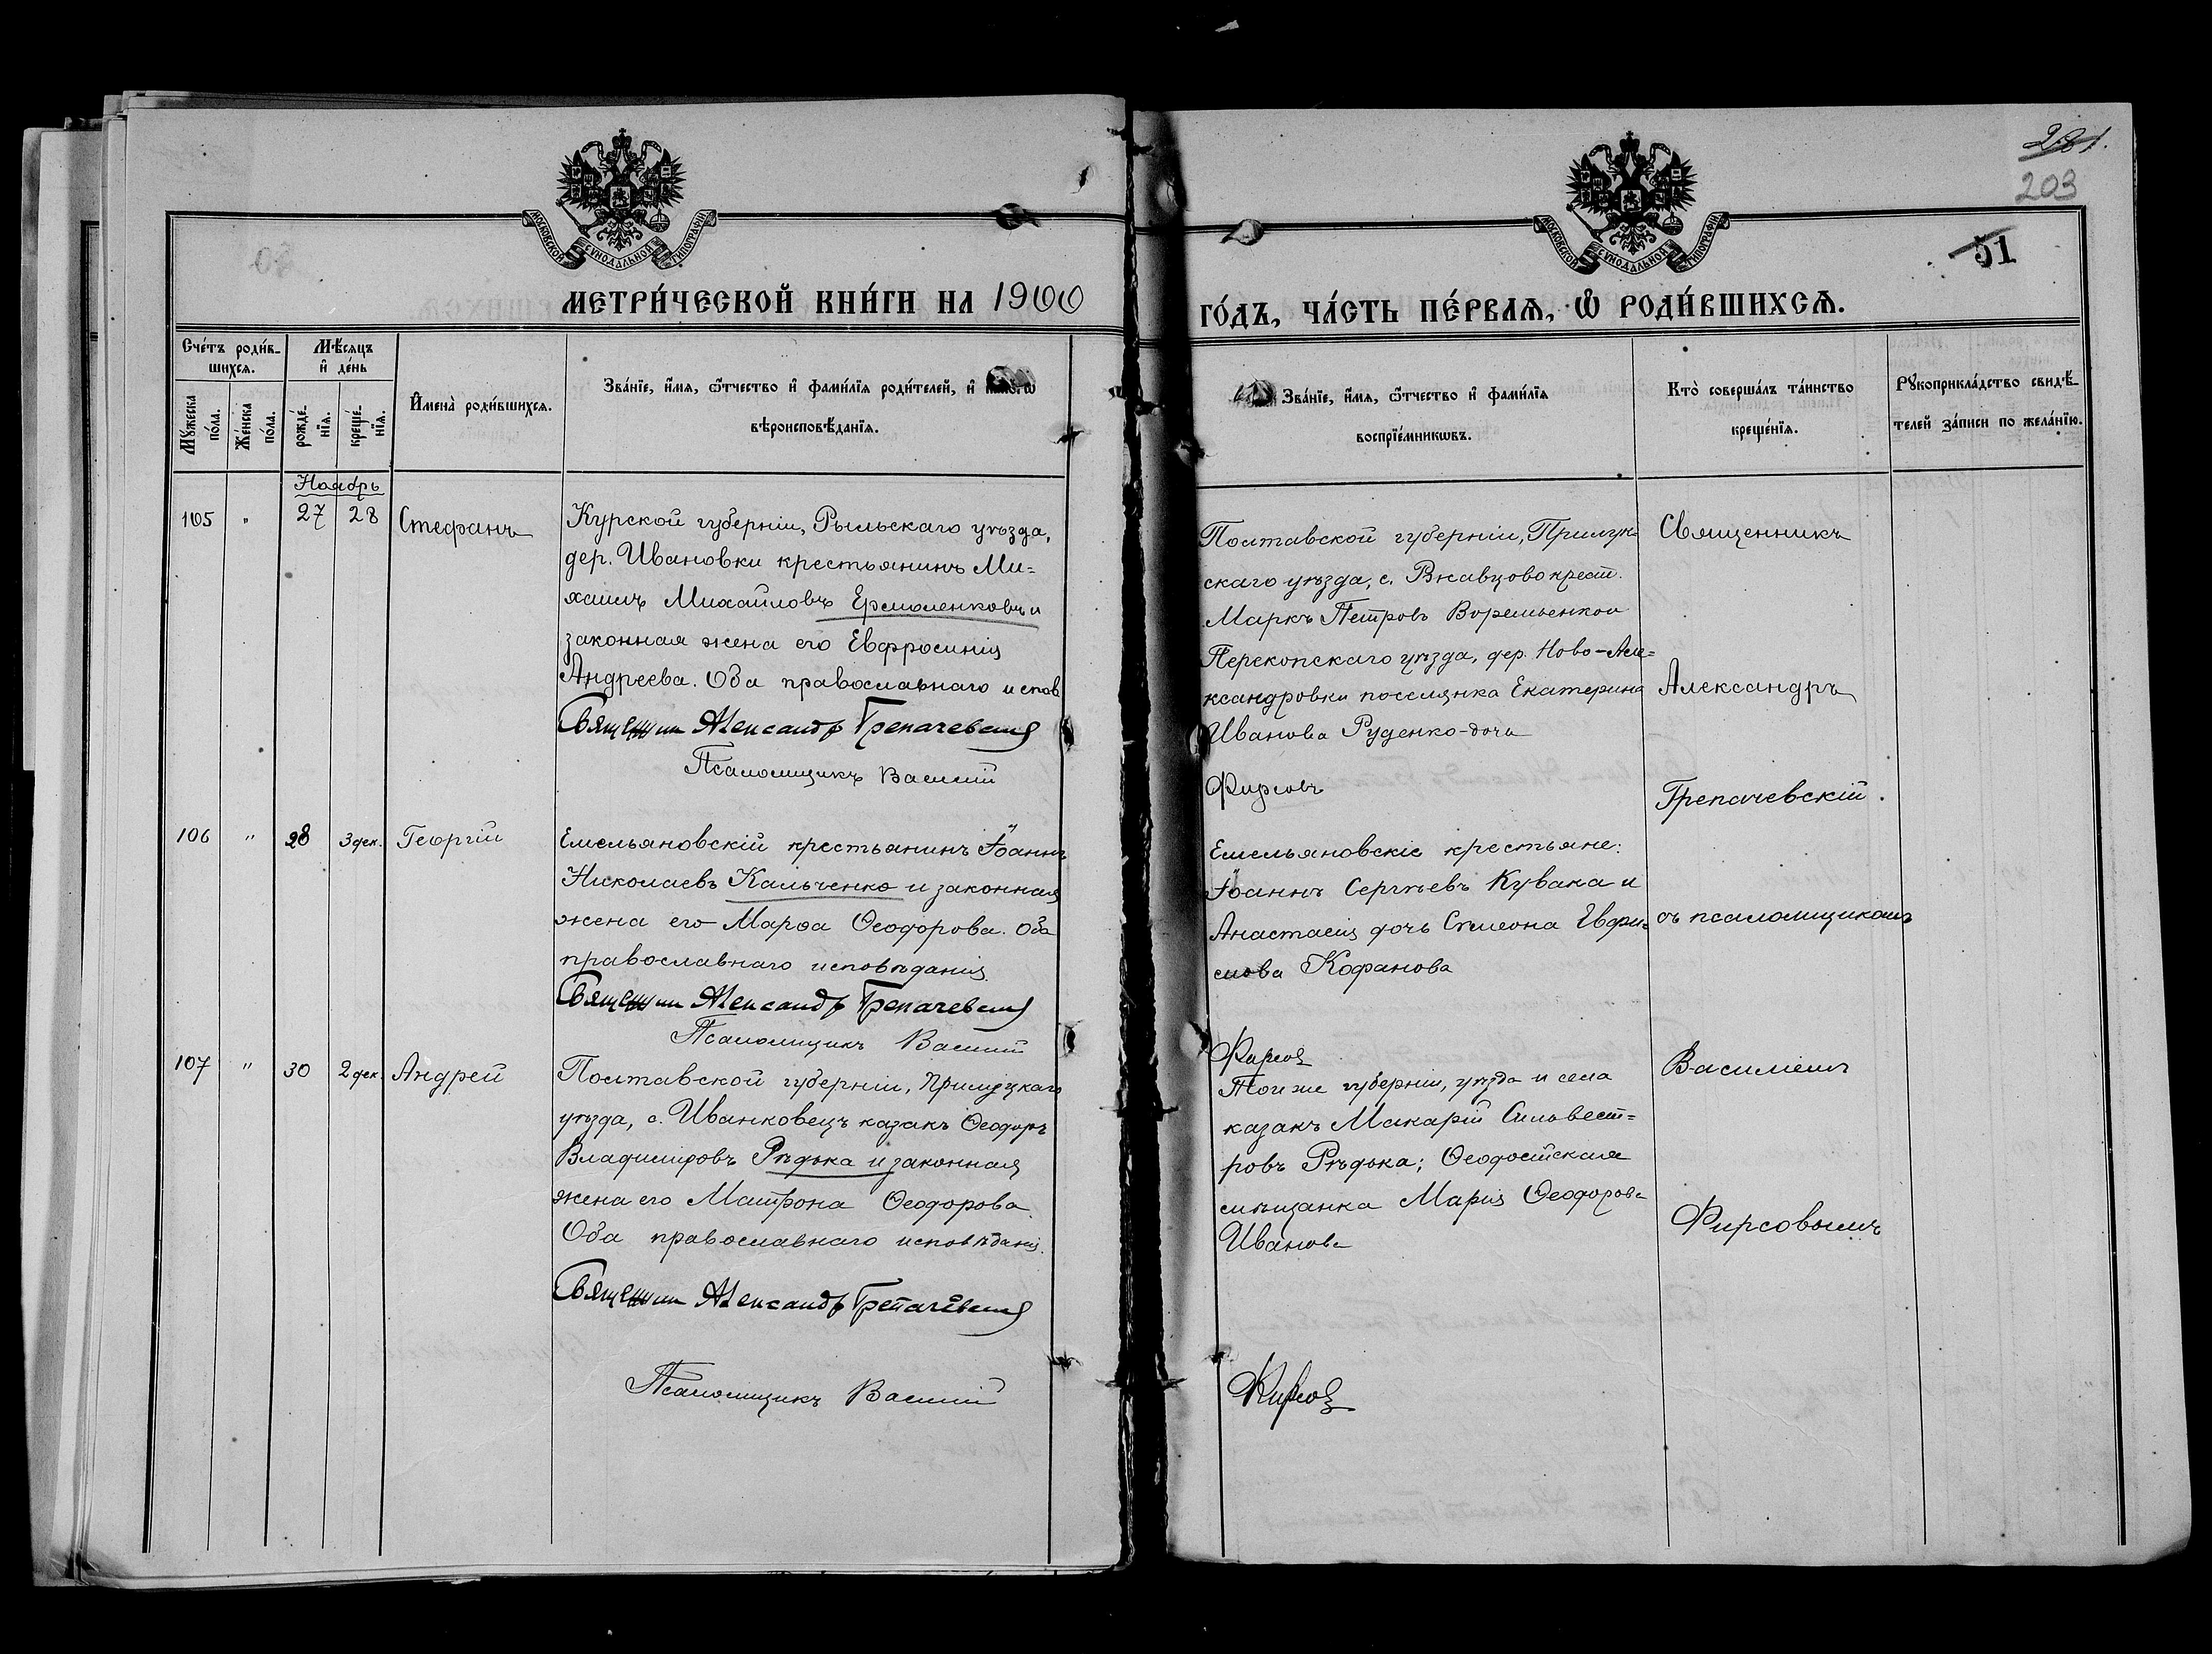 281.
203
51
МОСКОВСКОЙ СѴНОДАЛЬНОЙ ТИПОГРАФІИ
МОСКОВСКОЙ СѴНОДАЛЬНОЙ ТИПОГРАФІИ
МЕТРИ́ЧЕСКОЙ КНИ́ГИ НА 1900
ГО́ДЪ, ЧА́СТЬ ПЕ́РВАѦ, Ѡ҆ РОДИ́ВШИХСѦ.
Сче́тъ роди́в-
шихсѧ.
Мѣ́сѧцъ
и҆ де́нь
Мꙋ́жеска
по́ла.
Же́нска
по́ла.
рожде́-
нїѧ.
креще́-
нїѧ.
И҆мена̀ роди́вшихсѧ.
Зва́нїе, и҆́мѧ, ѻ҆́тчество и҆ фами́лїѧ роди́телей, и҆
вѣроисповѣ́данїѧ.
Зва́нїе, и҆́мѧ, ѻ҆́тчество и҆ фами́лїѧ
воспрїе́мникѡвъ.
Кто̀ соверша́лъ та́инство
креще́нїѧ.
Рꙋкоприкла́дство свидѣ́-
телей за́писи по жела́нїю.
Ноябрь
105 " 27 28 Стефанъ
Курской губерніи, Рыльскаго уѣзда,
дер. Ивановки крестьянинъ Ми=
хаилъ Михайловъ Ермоленковъ и
законная жена его Евфросинія
Андреева. Оба православнаго испов.
Священник Александр Грепачевский
Псаломщикъ Василій
Полтавской губерніи, Прилук=
скаго уѣзда, с. крест.
Маркъ Петровъ
Перекопскаго уѣзда, дер. Ново-Але=
ксандровки поселянка Екатерина
Иванова Руденко-дочь
Фирсовъ
Священникъ
Александръ
Грепачевскій.
106 " 28 3 дек. Георгій
Емельяновскій крестьянинъ Іоаннъ
Николаевъ Кальченко и законная
жена его Марѳа Ѳеодорова. Оба
православнаго исповѣданія
Священник Александр Грепачевский
Псаломщикъ Василій
Емельяновскіе крестьяне:
Іоаннъ Сергѣевъ Кувака и
Анастасія дочь Симеона
Кофанова
Фирсов
съ псаломщикомъ
107 " 30 2 дек. Андрей
Полтавской губерніи, Прилуцкаго
уѣзда, с. Иванковецъ казакъ Ѳеодоръ
Владиміровъ Рѣдька и законная
жена его Матрона Ѳеодорова.
Оба православнаго исповѣданія.
Священник Александр Грепачевский
Псаломщикъ Василій
Той же губерніи, уѣзда и села
казакъ Макарій Сильвест=
ровъ Рѣдька; Ѳеодосійская
мѣщанка Марія Ѳеодорова
Иванова
Фирсов
Василіемъ
Фирсовымъ